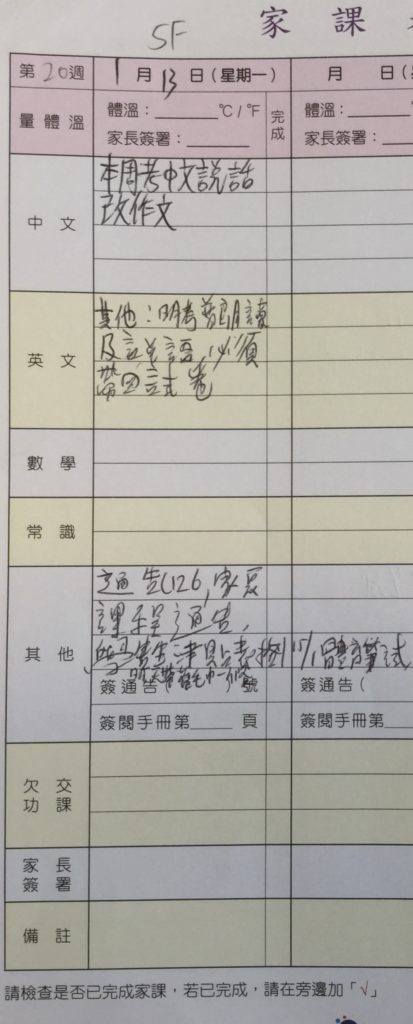 5F
家 課
第20週
1月13日(星期一)
月 日(
量體溫
體溫:______°C/°F
完成
體溫:
家長簽署:______
家長簽署:
中 文
本周考中文說話
改作文
英 文
其他:明考普朗讀
及說話,必須
帶回試卷
數 學
常 識
其 他
通告(126,家長
課程通告,
學生津貼表
15/1體育筆試
簽通告( )號
簽通告(
簽閱手冊第_____頁
簽閱手冊第
欠交功課
家長簽署
備 註
請檢查是否已完成家課,若已完成,請在旁邊加「√」